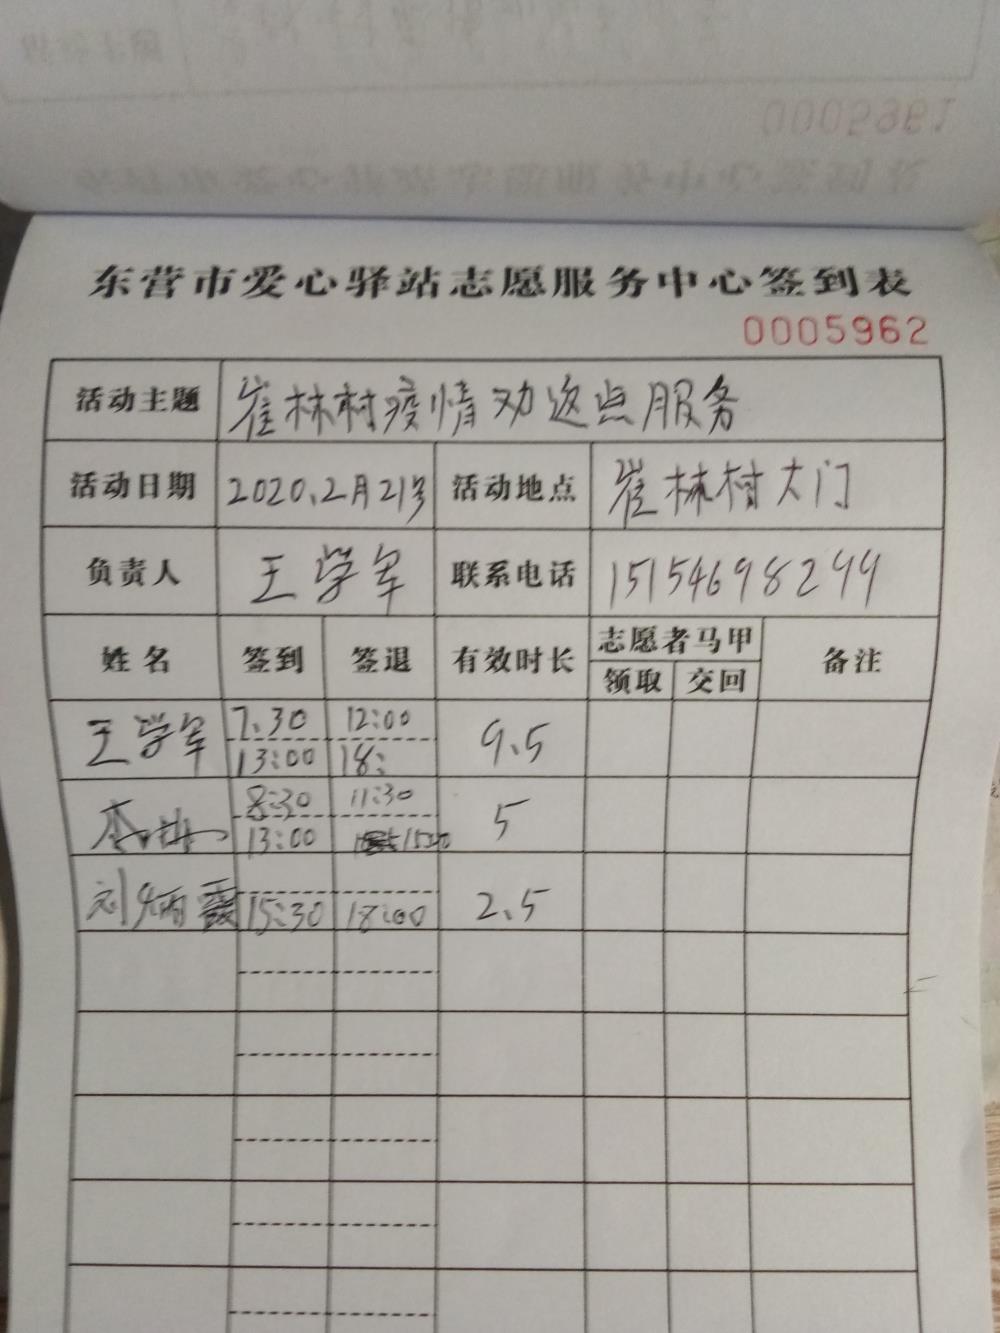 0005961
东营市爱心驿站志愿服务中心签到表
0005962
活动主题 崔林村疫情劝返点服务
活动日期 2020、2月21号 活动地点 崔林村大门
负责人 王学军 联系电话 15154698299
姓名 签到 签退 有效时长 志愿者马甲 备注
领取 交回
王学军 7.30 12:00 9.5
13:00 18:
8:30 11:30 5
13:00
刘炳霞 15:30 18:00 2.5